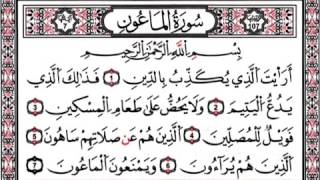 سُورَةُ الْمَاعُونِ
بِسْمِ اللَّهِ الرَّحْمَٰنِ الرَّحِيمِ
أَرَأَيْتَ الَّذِي يُكَذِّبُ بِالدِّينِ ١ فَذَٰلِكَ الَّذِي
يَدُعُّ الْيَتِيمَ ٢ وَلَا يَحُضُّ عَلَىٰ طَعَامِ الْمِسْكِينِ ٣
فَوَيْلٌ لِّلْمُصَلِّينَ ٤ الَّذِينَ هُمْ عَن صَلَاتِهِمْ سَاهُونَ ٥
الَّذِينَ هُمْ يُرَاءُونَ ٦ وَيَمْنَعُونَ الْمَاعُونَ ٧